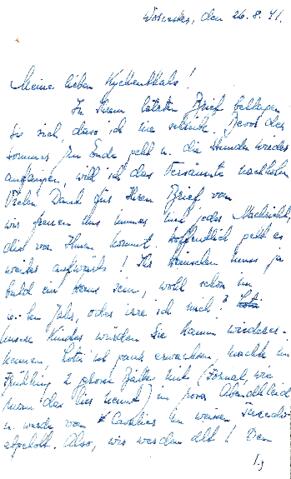 den 26.8.41.
Meine lieben
In Ihrem letzten Brief beklagen
Sie sich, dass ich nie schreibe. Bevor der
Sommer zu Ende geht u. die Stunden wieder
anfangen, will ich das Versäumte nachholen
Vielen Dank für Ihren Brief, von
wir freuen uns immer mit jeder Nachricht,
die von Ihnen kommt. Hoffentlich geht es
weiter aufwärts! Ihr muss ja
bald ein Mann sein, wohl schon im
Jahr, oder irre ich mich?
Unsere Kinder würden Sie kaum wiedererkennen
ist ganz erwachsen, machte im
Frühling 2 grosse Bälle mit (Formal, wie
man das hier nennt) in gross Abendkleid
u. wurde von Cavalier im weissen
abgeholt. Also, wir werden alt! Den